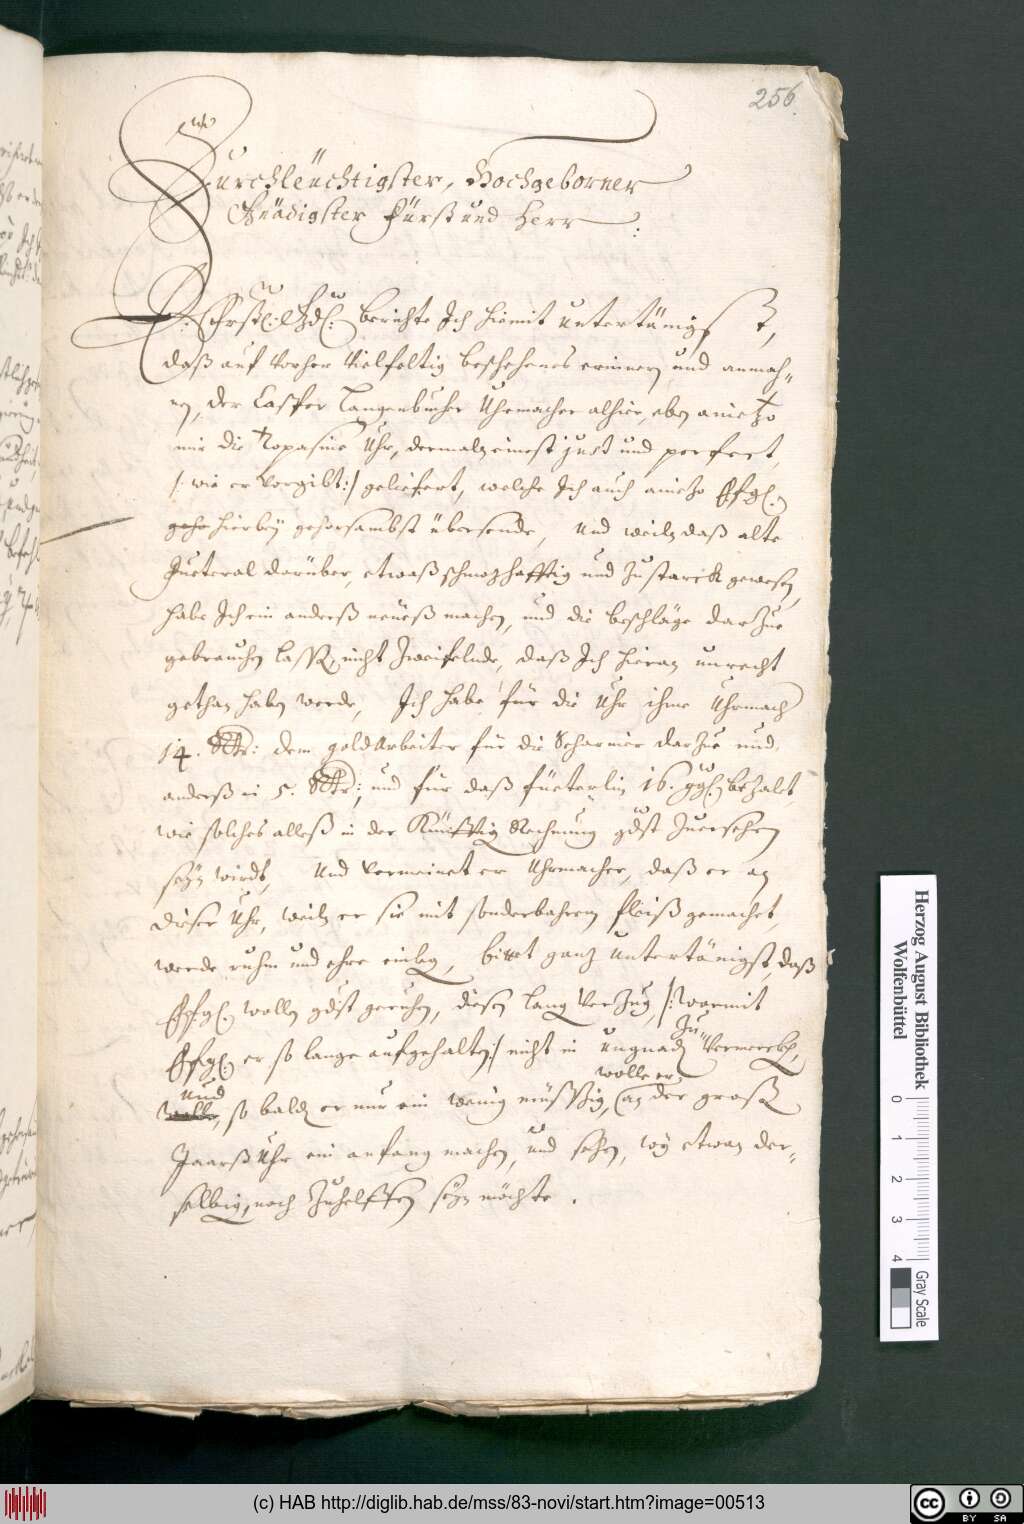 256.
Durchleüchtigster, Hochgeborner
Gnädigster Fürst und Herr
berichte Ich hiemit untertänigst,
daß auf vorher vielfeltig beschehenes erinnern und anmah=
nen, der Casper Langenbucher Uhrmacher alhier, eben anietzo
mir die Uhr, dermalz einest just und perfect,
/: wie er vorgibt :/ geliefert, welche Ich auch anietzo EfgL:
hierbey gehorsambst übersende, und weiln daß alte
Fueteral darüber, etwaß schmozhafftig und zu starck gewesen,
habe Ich ein anderß neueß machen, und die beschläge darzue
gebrauchen lassen, nicht zweifelnde, daß Ich hieran unrecht
gethan haben werde, Ich habe für die Uhr ihme Uhrmacher
14. Rtt: dem goldarbeiter für die Scharnier darzue und
anderß 5. Rtt: und für daß füeterlin 16. ggl. bezalt
wie solches alleß in der Künfftig Rechnung gdst zuersehen
seyn wirdt, und vermeinet er Uhrmacher, daß er an
dieser Uhr, weiln er sie mit sonderbahrem fleiß gemachet,
werde ruhm und ehre einleg, bittet ganz untertänigst, daß
EfgL. wollen gdst geruhen, diesen lang verzug, /: warmit
EfgL: er so lange aufgehalten :/ nicht in ungnaden zu= vermercken,
und, so baldt er nur ein wenig müssig, wolle er an der groß
Jaarß Uhr ein anfang machen, und sehen, wy etwan der=
selbigen, noch zuhelffen seyn möchte.
Herzog August Bibliothek
Wolfenbüttel
0 1 2 3 4
Gray Scale
(c) HAB http://diglib.hab.de/mss/83-novi/start.htm?image=00513
cc BY SA